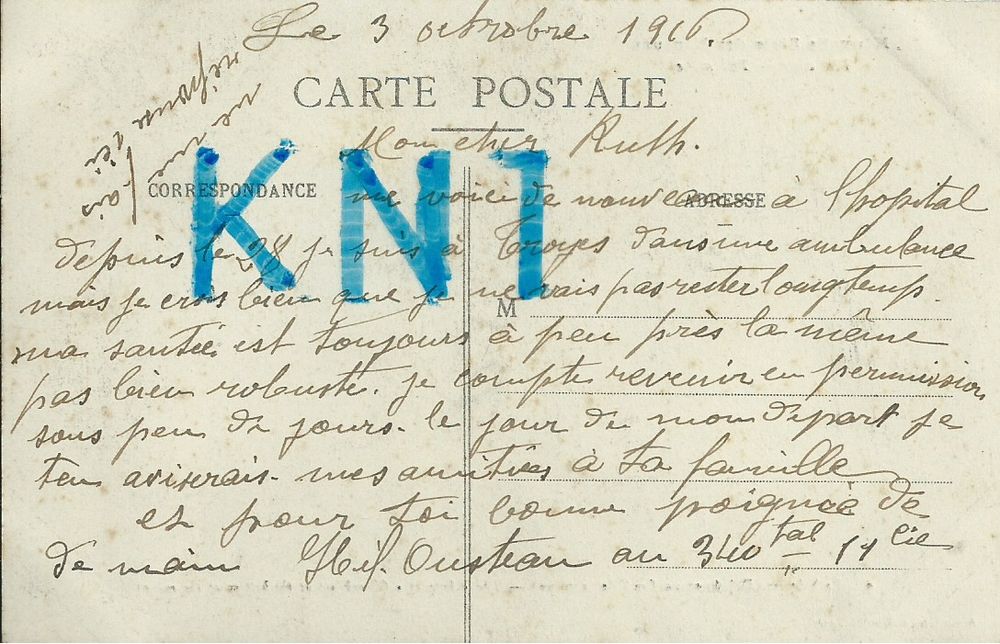 Le 3 octobre 1916.
CARTE POSTALE
Mon cher Ruth.
CORRESPONDANCE
ADRESSE
me voici de nouveau à l'hopital
depuis le 28 je suis à Troyes dans une ambulance
mais je crois bien que je ne vais pas rester longtemp
M
ma santée est toujours à peu près la même
pas bien robuste. je compte revenir en permission
sous peu de jours. le jour de mon départ je
ten aviserais. mes amitiés à ta famille
et pour toi bonne poignée de
de main Oustean au 340
ne me
fais rien
réponse
KN1